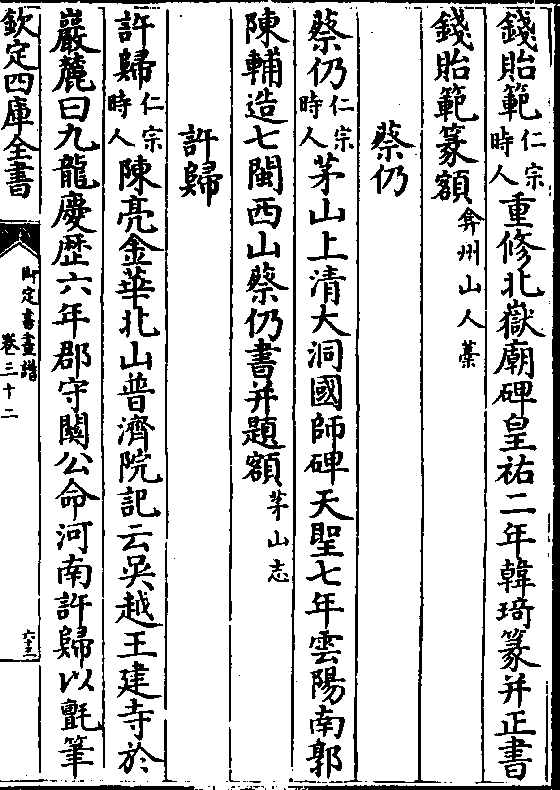 錢貽範仁宗時人重修北嶽廟碑皇祐二年韓琦篆并正書
錢貽範篆額弇州山人藁
蔡仍
蔡仍仁宗時人茅山上清大洞國師碑天聖七年雲陽南郭
陳輔造七閩西山蔡仍書并題額茅山志
許歸
許歸仁宗時人陳亮金華北山普濟院記云吳越王建寺於
巖麓曰九龍慶歴六年郡守關公命河南許歸以氈筆
欽定四庫全書
御定書畫譜
卷三十二
六十三